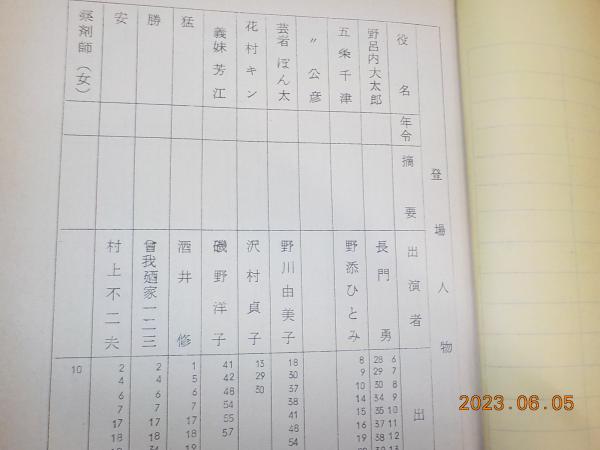 登場人物
役名
年令
摘要
出演者
出
野呂内大太郎
長門勇
6
7
8
9
10
11
12
28
29
30
34
35
37
38
五条千津
野添ひとみ
8
9
10
14
15
16
19
〃公彦
芸者ぽん太
野川由美子
18
30
37
38
41
48
54
花村キン
沢村貞子
13
29
30
義妹芳江
磯野洋子
41
42
48
54
55
57
猛
酒井修
1
5
6
7
17
18
19
勝
曾我廼家一二三
2
4
6
7
17
18
安
村上不二夫
2
4
6
7
17
18
薬剤師（女）
10
2023.06.05